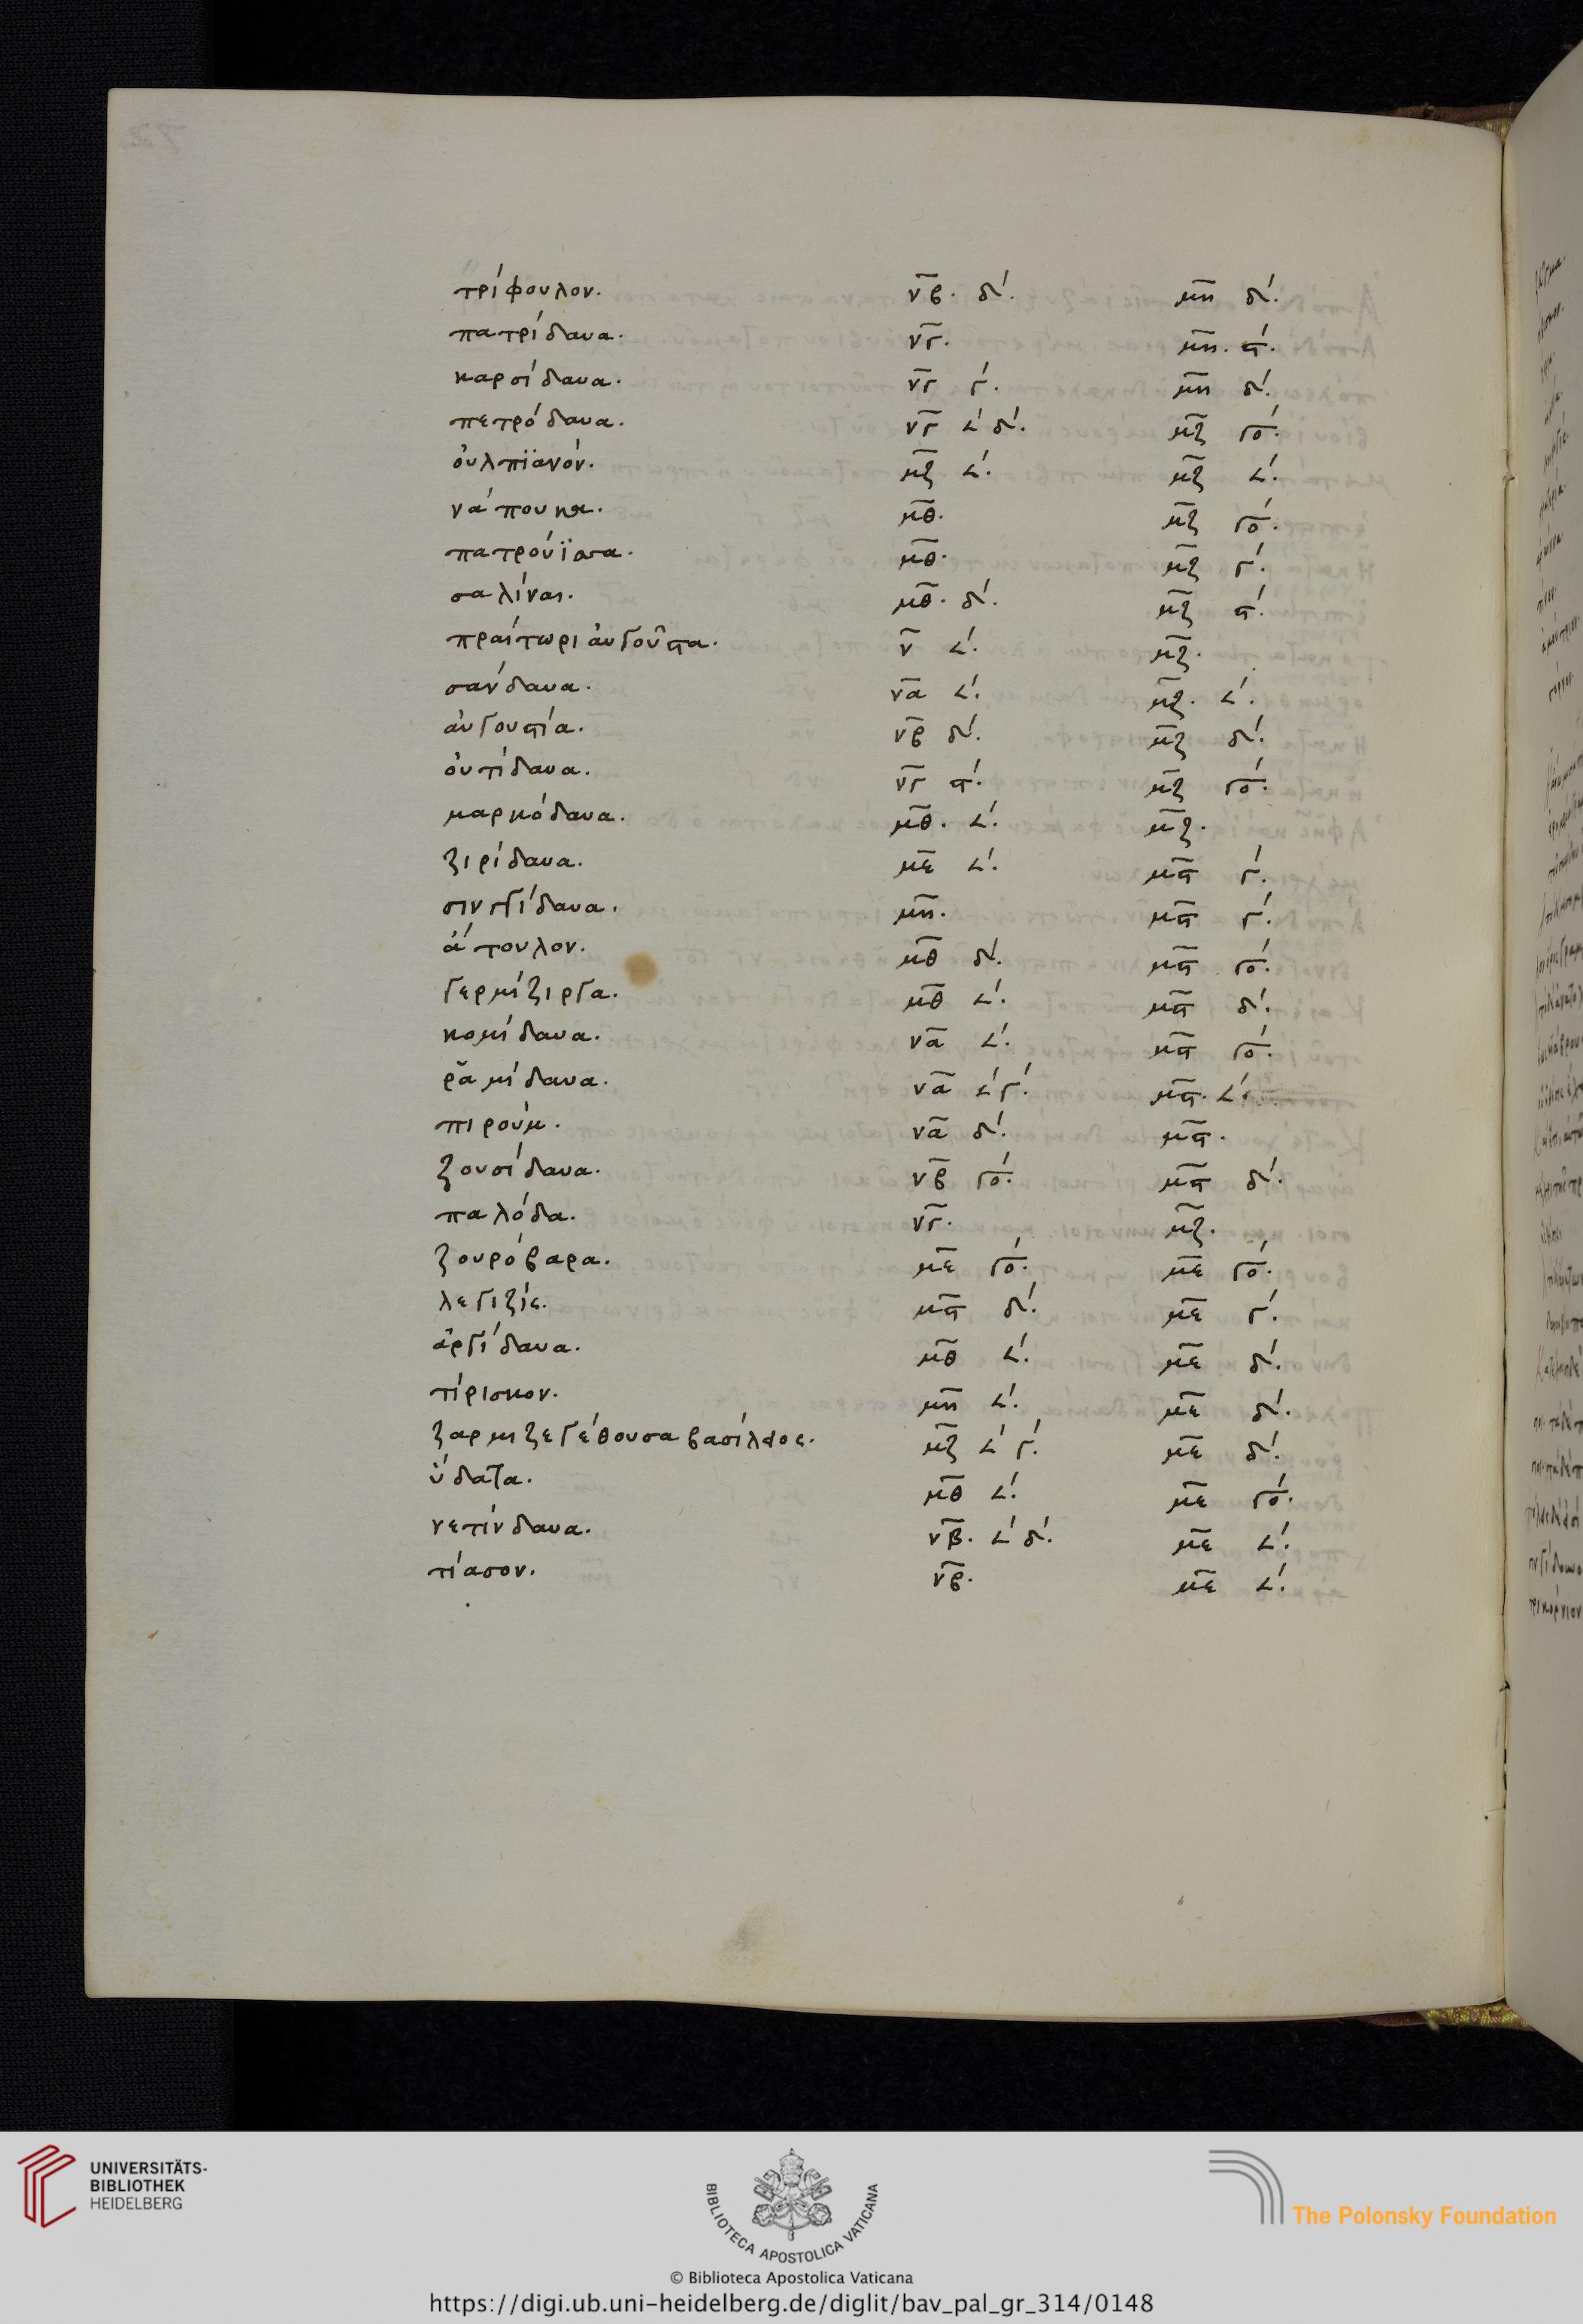 τρίφουλον. ν̅β̅. δ'. μ̅η̅ δ'.
πατρίδαυα. ν̅γ̅. μ̅η̅. ϛ'.
καρσίδαυα. ν̅γ̅ γ'. μ̅η̅ δ'.
πετρόδαυα. ν̅γ̅ 𐅵' δ'. μ̅ζ̅ γο'.
ὀυλπϊανόν. μ̅ζ̅ 𐅵'. μ̅ζ̅ 𐅵'.
νάπουκα. μ̅θ̅. μ̅ζ̅ γο'.
πατρόυϊσσα. μ̅θ̅. μ̅ζ̅ γ'.
σαλίναι. μ̅θ̅. δ'. μ̅ζ̅ ϛ'.
πραίτωρι ἀυγοῦϛα. ν̅ 𐅵'. μ̅ζ̅.
σάνδαυα. ν̅α̅ 𐅵'. μ̅ζ̅. 𐅵'.
ἀυγουϛία. ν̅β̅ δ'. μ̅ζ̅ δ'.
ὀυτίδαυα. ν̅γ̅ ϛ'. μ̅ζ̅ γο'.
μαρκόδαυα. μ̅θ̅. 𐅵'. μ̅ζ̅.
ζιρίδαυα. μ̅ε̅ 𐅵'. μ̅ϛ̅ γ'.
σινγγίδαυα. μ̅η̅. μ̅ϛ̅ γ'.
ἄπουλον. μ̅θ̅ δ'. μ̅ϛ̅ γο'.
γερμίζιργα. μ̅θ̅ 𐅵'. μ̅ϛ̅ δ'.
κομίδαυα. ν̅α̅ 𐅵'. μ̅ϛ̅ γο'.
ῥαμίδαυα. ν̅α̅ 𐅵' γ'. μ̅ϛ̅. 𐅵'.
πιρούμ. ν̅α̅ δ'. μ̅ϛ̅.
ζουσίδαυα. ν̅β̅ γο'. μ̅ϛ̅ δ'.
παλόδα. ν̅γ̅. μ̅ζ̅.
ζουρόβαρα. μ̅ε̅ γο'. μ̅ε̅ γο'.
λεγιζίς. μ̅ϛ̅ δ'. μ̅ε̅ γ'.
ἀργίδαυα. μ̅θ̅ 𐅵'. μ̅ε̅ δ'.
τίρισκον. μ̅η̅ 𐅵'. μ̅ε̅ δ'.
ζαρμιζεγέθουσα βασίλειος. μ̅ζ̅ 𐅵' γ'. μ̅ε̅ δ'.
ὕδατα. μ̅θ̅ 𐅵'. μ̅ε̅ γο'.
νετίνδαυα. ν̅β̅. 𐅵' δ'. μ̅ε̅ 𐅵'.
τίασον. ν̅β̅. μ̅ε̅ 𐅵'.
UNIVERSITÄTS-
BIBLIOTHEK
HEIDELBERG
BIBLIOTECA APOSTOLICA VATICANA
The Polonsky Foundation
© Biblioteca Apostolica Vaticana
https://digi.ub.uni-heidelberg.de/diglit/bav_pal_gr_314/0148